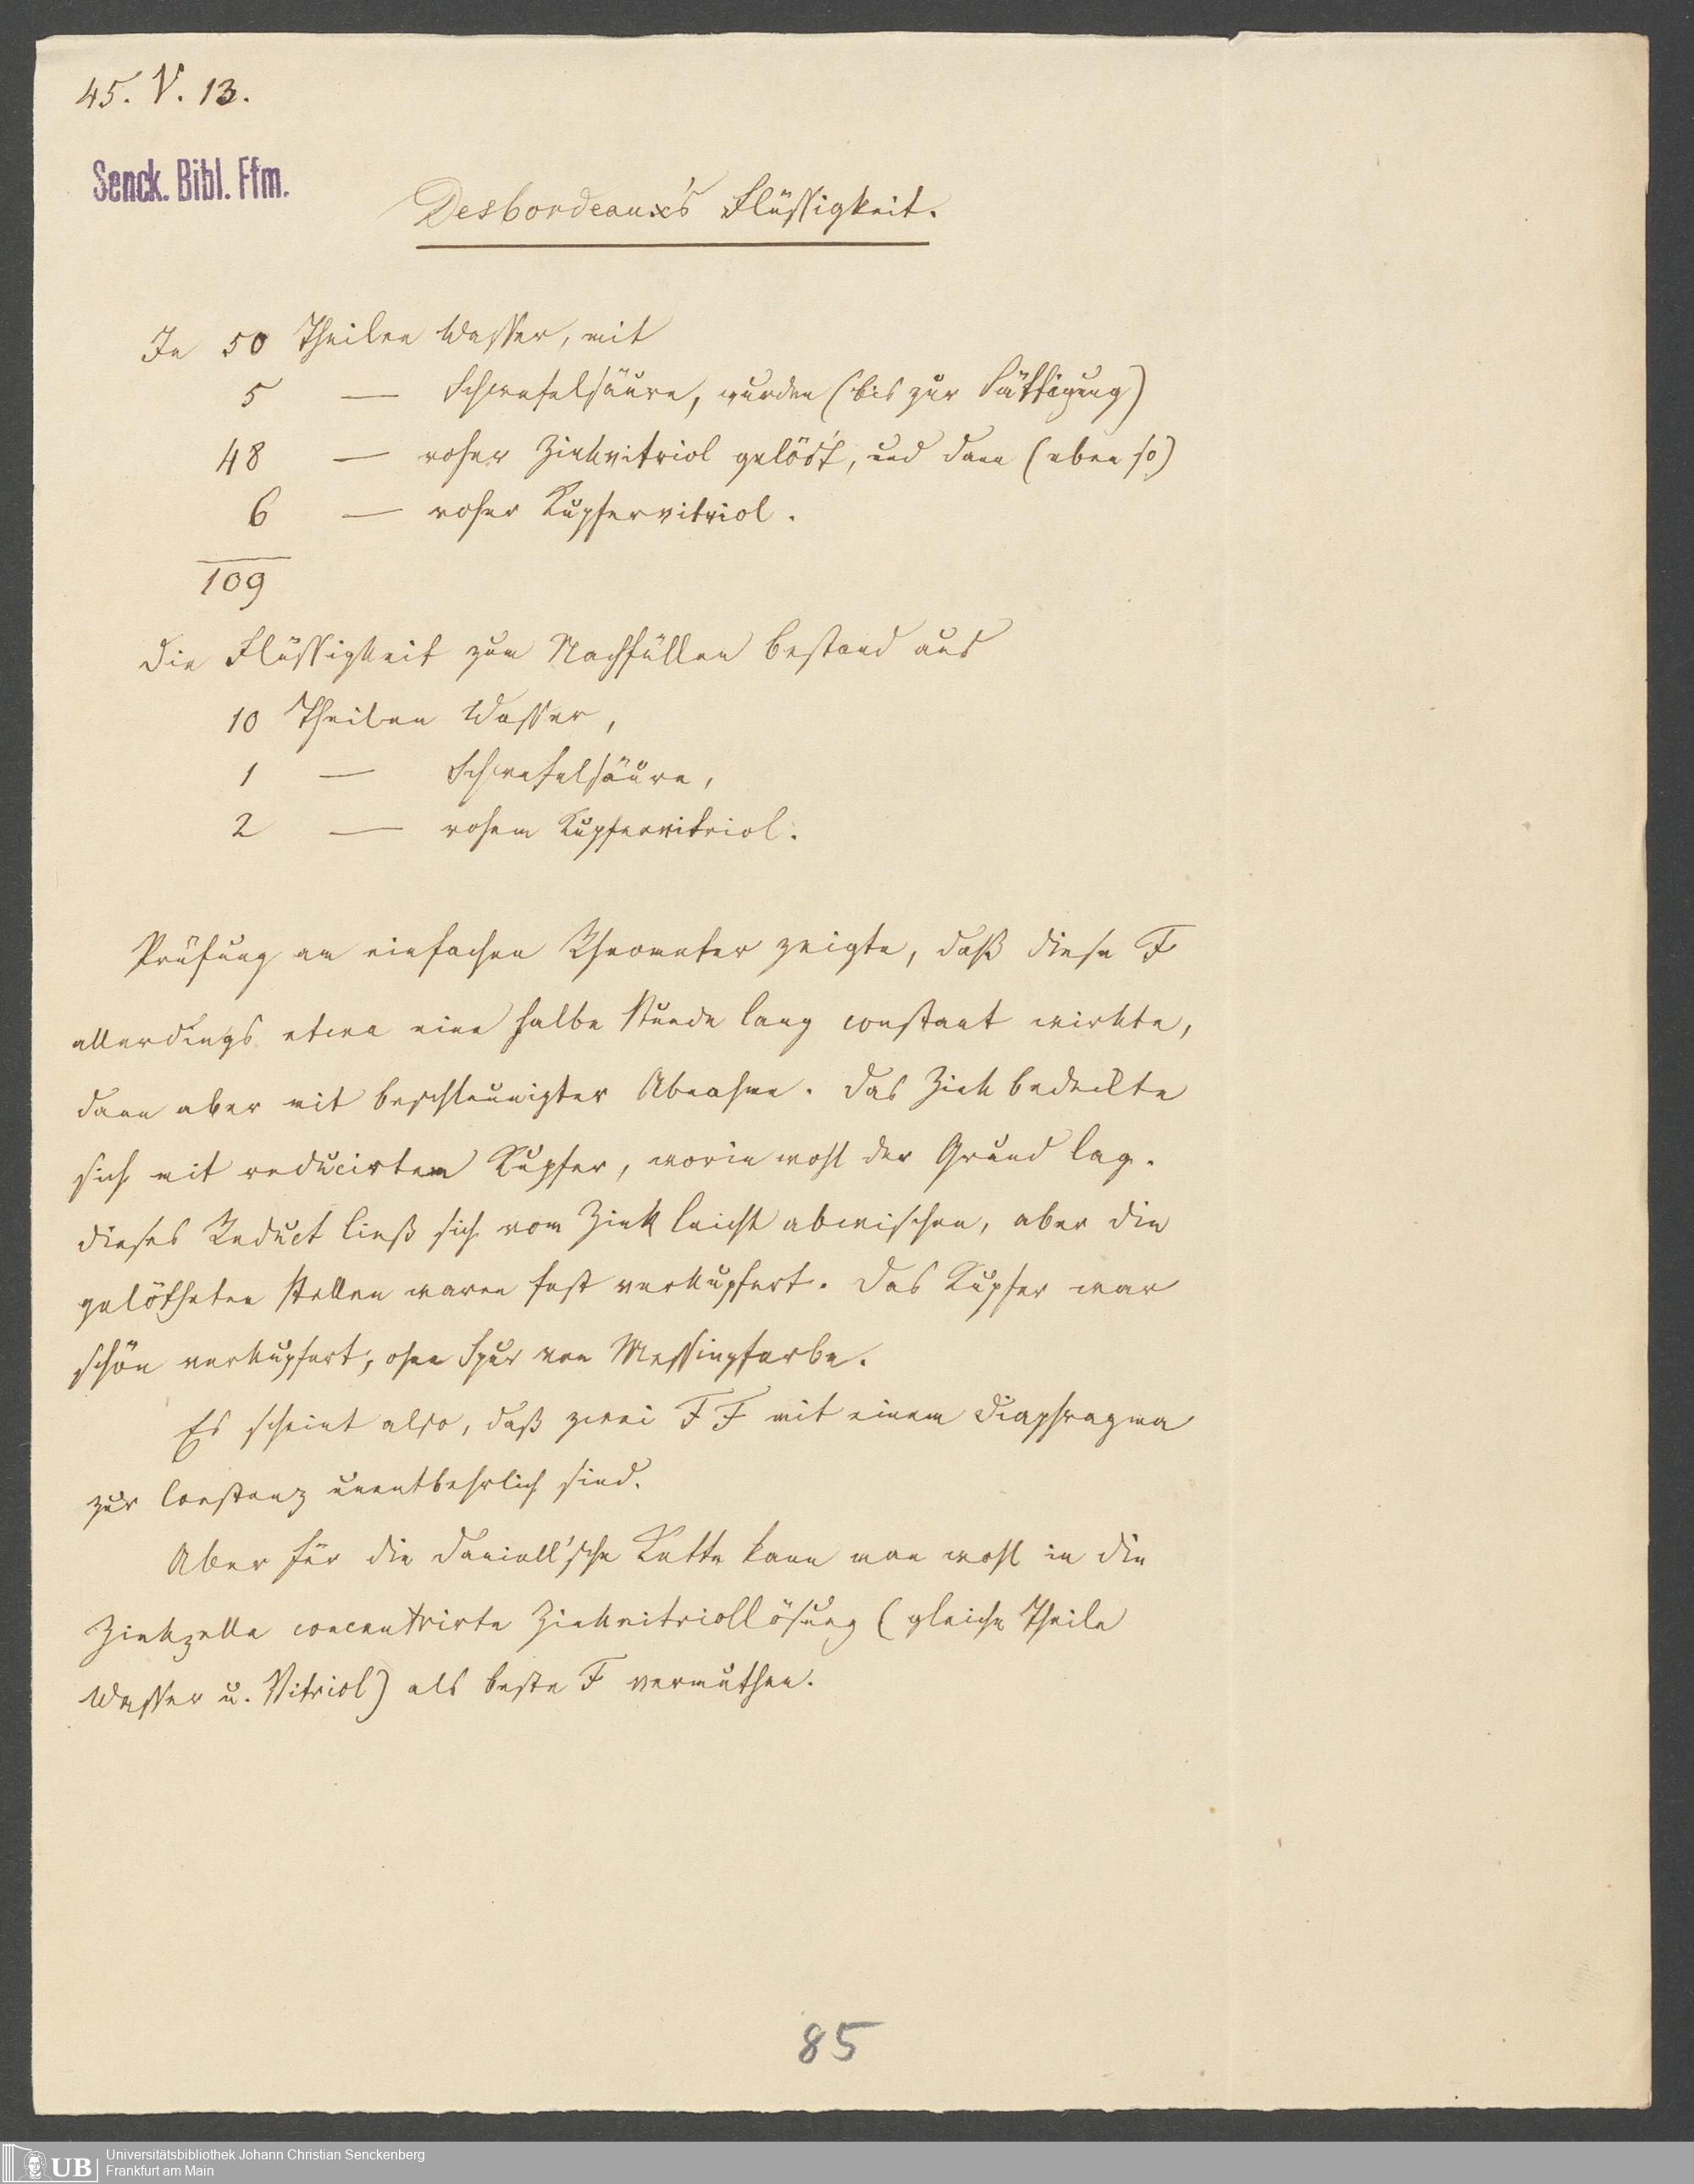 45. V. 13.
Senck. Bibl. Ffm.
Desbordeaux's Flüssigkeit.
In 50 Theilen Wasser, mit
5 — Schwefelsäure, wurden (bis zur Sättigung)
48 — roher Zinkvitriol gelöst, und dann (eben so)
6 — roher Kupfervitriol.
109
Die Flüssigkeit zum Nachfüllen bestand aus
10 Theilen Wasser,
1 — Schwefelsäure,
2 — rohem Kupfervitriol.
Prüfung am einfachen Rheometer zeigte, daß diese F
allerdings etwa eine halbe Stunde lang constant wirkte,
dann aber mit beschleunigter Abnahme. Das Zink bedeckte
sich mit reducirtem Kupfer, worin wohl der Grund lag.
Dieses Reduct ließ sich vom Zink leicht abwischen, aber die
gelötheten Stellen waren fest verkupfert. Das Kupfer war
schön verkupfert, ohne Spur von Messingfarbe.
Es scheint also, daß zwei F F mit einem Diaphragma
zur Constanz unentbehrlich sind.
Aber für die Daniell'sche Kette kann man wohl in die
Zinkzelle concentrirte Zinkvitriollösung (gleiche Theile
Wasser u. Vitriol) als beste F vermuthen.
85
UB Universitätsbibliothek Johann Christian Senckenberg
Frankfurt am Main